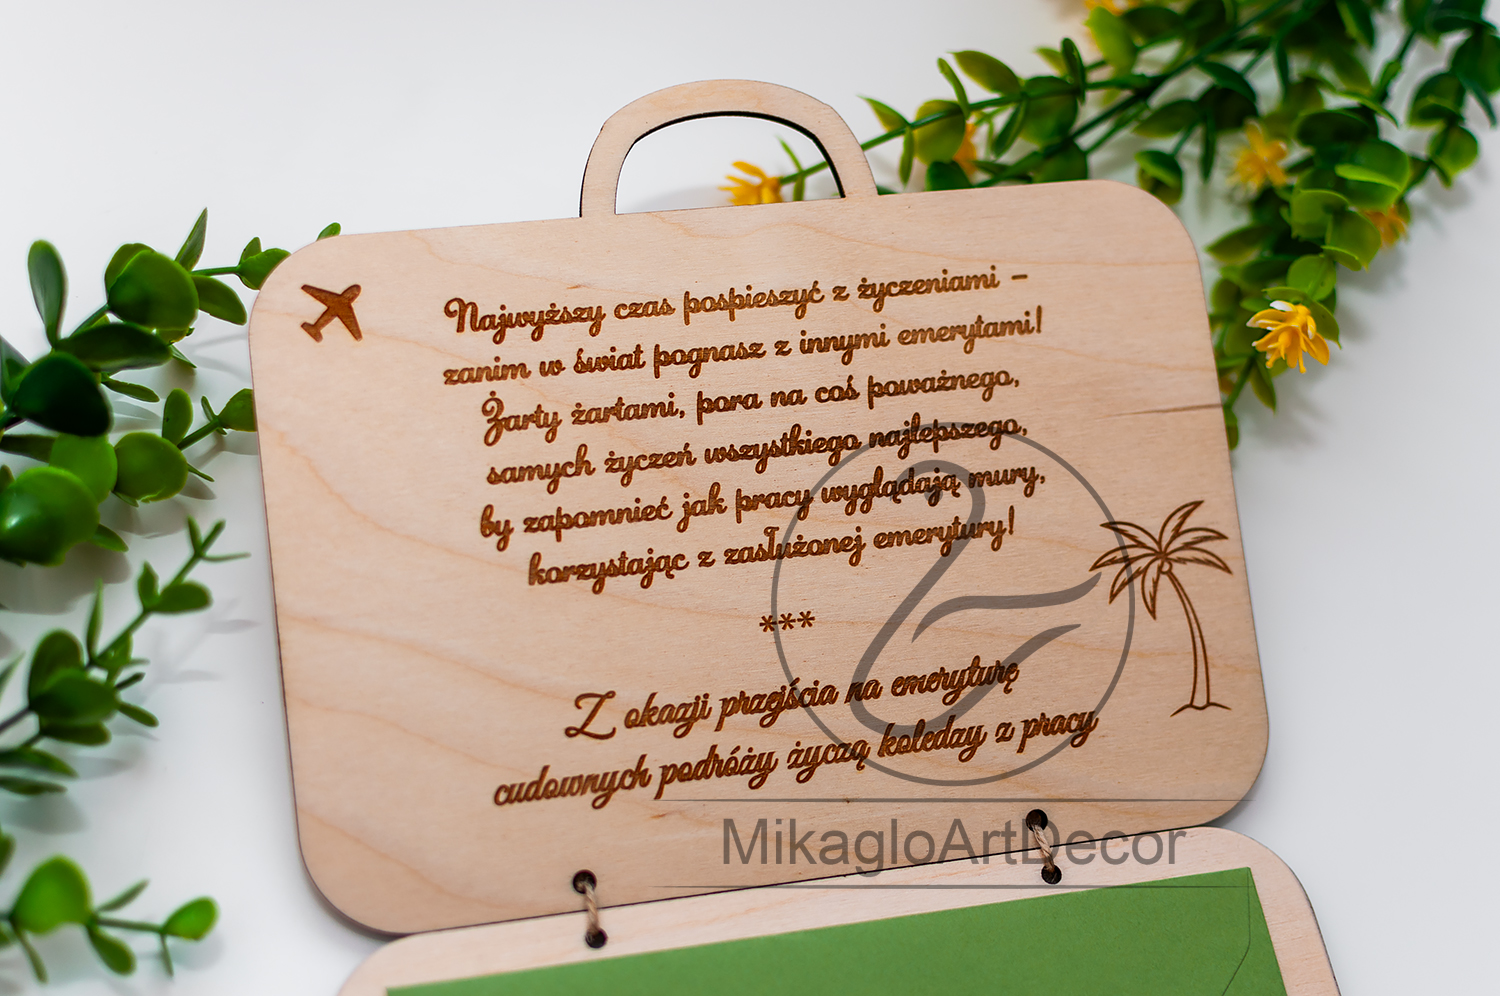 Najwyższy czas pospieszyć z życzeniami –
zanim w świat pognasz z innymi emerytami!
Żarty żartami, pora na coś poważnego,
samych życzeń wszystkiego najlepszego,
by zapomnieć jak pracy wyglądają mury,
korzystając z zasłużonej emerytury!
***
Z okazji przejścia na emeryturę
cudownych podróży życzą koledzy z pracy
MikagloArtDecor